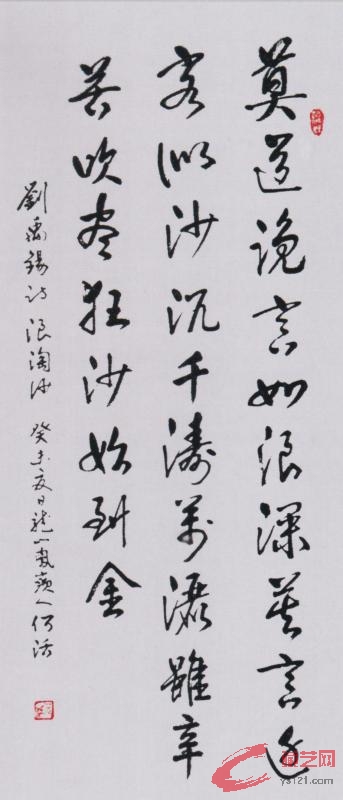 莫道谗言如浪深莫言迁
客似沙沉千涛萬漉雖辛
苦吹尽狂沙始到金
劉禹锡诗 浪淘沙 癸未夏日
艺网
ys121.com